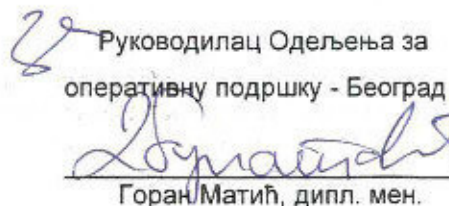 Руководилац Одељења за
оперативну подршку - Београд
Горан Матић, дипл. мен.